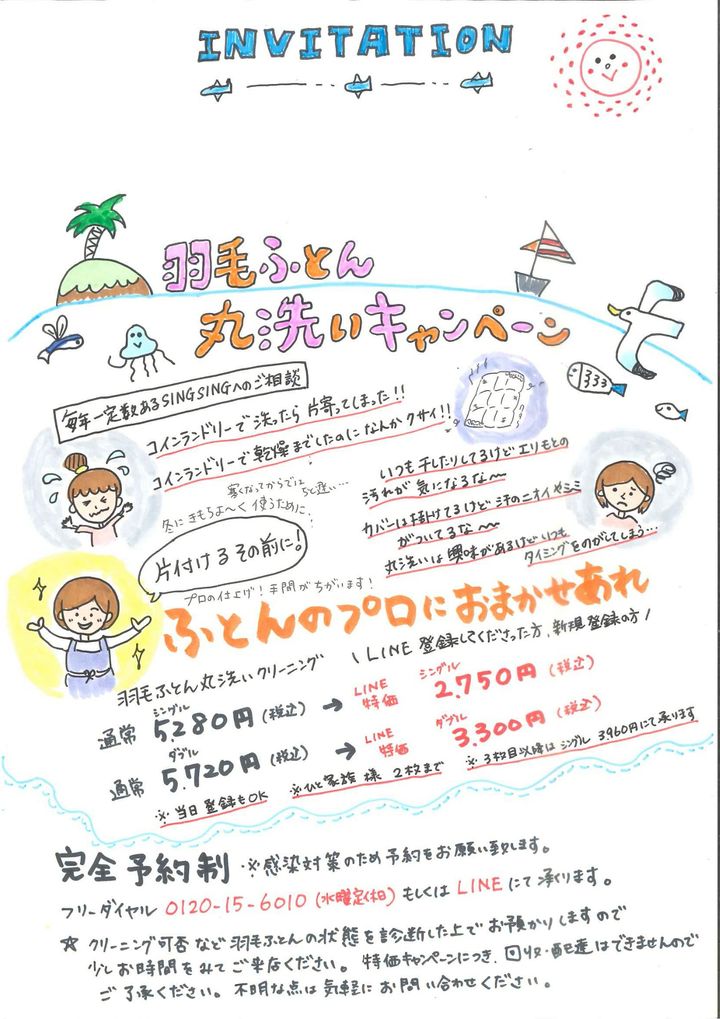 INVITATION
羽毛ふとん
丸洗いキャンペーン
毎年一定数あるSINGSINGへのご相談
コインランドリーで洗ったら片寄ってしまった!!
コインランドリーで乾燥までしたのになんかクサイ!!
いつも干したりしてるけどエリもとの
汚れが気になるな〜
カバーは掛けてるけど汗のニオイやシミ
がついてるな〜
丸洗いは興味があるけどいつも
タイミングをのがしてしまう…
寒くなってからでは
ちと遅い…
冬にきもちよ〜く使うために
片付けるその前に!
プロの仕上げ!手間がちがいます!
ふとんのプロにおまかせあれ
\LINE登録してくださった方、新規登録の方/
羽毛ふとん丸洗いクリーニング
通常 シングル 5,280円(税込) → LINE特価 シングル 2,750円(税込)
通常 ダブル 5,720円(税込) → LINE特価 ダブル 3,300円(税込)
※当日登録もOK ※ひと家族様2枚まで ※3枚目以降はシングル3960円にて承ります
完全予約制 ※感染対策のため予約をお願い致します。
フリーダイヤル 0120-15-6010(水曜定休)もしくはLINEにて承ります。
☆クリーニング可否など羽毛ふとんの状態を診断した上でお預かりしますので
少しお時間をみてご来店ください。特価キャンペーンにつき、回収・配達はできませんので
ご了承ください。不明な点は気軽にお問い合わせください。